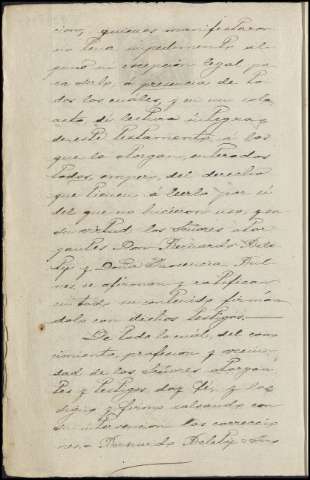 cion; quienes manifestaron
no tener impedimento al-
guno ni excepcion legal pa-
ra serlo, á presencia de to-
dos los cuales, y en un solo
acto, di lectura integra
de este testamento á los
que lo otorgan, enterados
todos, empero, del derecho
que tienen á leerlo por sí
del que no hicieron uso, y en
su virtud los Señores otor-
gantes Don Fernando
y Doña
se afirman y ratifican
en todo su contenido firman-
dolo con dichos testigos.
De todo lo cual, del cono-
cimiento, profesion y vecin-
dad de los Señores otorgan-
tes y testigos, doy fé, y lo
signo y firmo salvando con
su intervencion las correccio-
nes. Fernando